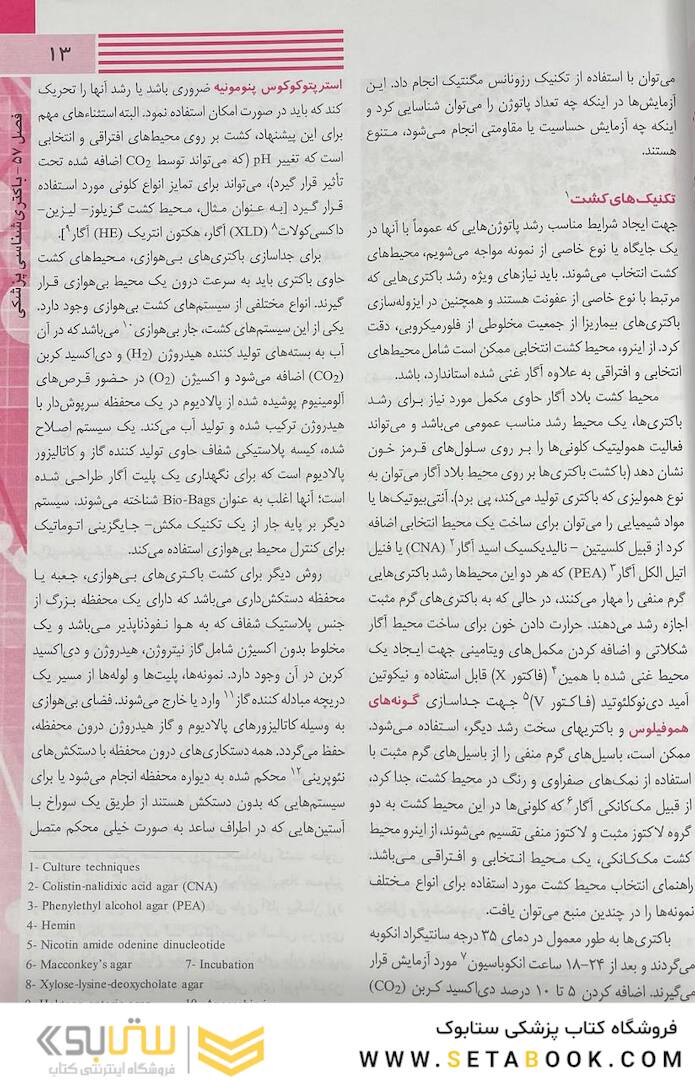 ۱۳
فصل ۵۷ - باکتری‌شناسی پزشکی
می‌توان با استفاده از تکنیک رزونانس مگنتیک انجام داد. این
آزمایش‌ها در اینکه چه تعداد پاتوژن را می‌توان شناسایی کرد و
اینکه چه آزمایش حساسیت یا مقاومتی انجام می‌شود، متنوع
هستند.
تکنیک‌های کشت۱
جهت ایجاد شرایط مناسب رشد پاتوژن‌هایی که عموماً با آنها در
یک جایگاه یا نوع خاصی از نمونه مواجه می‌شویم، محیط‌های
کشت انتخاب می‌شوند. باید نیازهای ویژه رشد باکتری‌هایی که
مرتبط با نوع خاصی از عفونت هستند و همچنین در ایزوله‌سازی
باکتری‌های بیماریزا از جمعیت مخلوطی از فلورمیکروبی، دقت
کرد. از اینرو، محیط کشت انتخابی ممکن است شامل محیط‌های
انتخابی و افتراقی به علاوه آگار غنی شده استاندارد، باشد.
محیط کشت بلاد آگار حاوی مکمل مورد نیاز برای رشد
باکتری‌ها، یک محیط رشد مناسب عمومی می‌باشد و می‌تواند
فعالیت همولیتیک کلونی‌ها را بر روی سلول‌های قرمز خون
نشان دهد (با کشت باکتری‌ها بر روی محیط بلاد آگار می‌توان به
نوع همولیزی که باکتری تولید می‌کند، پی برد). آنتی‌بیوتیک‌ها یا
مواد شیمیایی را می‌توان برای ساخت یک محیط انتخابی اضافه
کرد از قبیل کلسیتین - نالیدیکسیک اسید آگار۲ (CNA) یا فنیل
اتیل الکل آگار۳ (PEA) که هر دو این محیط‌ها رشد باکتری‌هایی
گرم منفی را مهار می‌کنند، در حالی که به باکتری‌های گرم مثبت
اجازه رشد می‌دهند. حرارت دادن خون برای ساخت محیط آگار
شکلاتی و اضافه کردن مکمل‌های ویتامینی جهت ایجاد یک
محیط غنی شده با همین۴ (فاکتور X) قابل استفاده و نیکوتین
آمید دی‌نوکلئوتید (فاکتور V)۵ جهت جداسازی گونه‌های
هموفیلوس و باکتریهای سخت رشد دیگر، استفاده می‌شود.
ممکن است، باسیل‌های گرم منفی را از باسیل‌های گرم مثبت با
استفاده از نمک‌های صفراوی و رنگ در محیط کشت، جدا کرد،
از قبیل مک‌کانکی آگار۶ که کلونی‌ها در این محیط کشت به دو
گروه لاکتوز مثبت و لاکتوز منفی تقسیم می‌شوند، از اینرو محیط
کشت مک‌کانکی، یک محیط انتخابی و افتراقی می‌باشد.
راهنمای انتخاب محیط کشت مورد استفاده برای انواع مختلف
نمونه‌ها را در چندین منبع می‌توان یافت.
باکتری‌ها به طور معمول در دمای ۳۵ درجه سانتیگراد انکوبه
می‌گردند و بعد از ۲۴-۱۸ ساعت انکوباسیون۷ مورد آزمایش قرار
می‌گیرند. اضافه کردن ۵ تا ۱۰ درصد دی‌اکسید کربن (CO2)
استرپتوکوکوس پنومونیه ضروری باشد یا رشد آنها را تحریک
کند که باید در صورت امکان استفاده نمود. البته استثناءهای مهم
برای این پیشنهاد، کشت بر روی محیط‌های افتراقی و انتخابی
است که تغییر pH (که می‌تواند توسط CO2 اضافه شده تحت
تأثیر قرار گیرد)، می‌تواند برای تمایز انواع کلونی مورد استفاده
قرار گیرد [به عنوان مثال، محیط کشت گزیلوز- لیزین-
داکسی‌کولات۸ (XLD) آگار، هکتون انتریک (HE) آگار۹].
برای جداسازی باکتری‌های بی‌هوازی، محیط‌های کشت
حاوی باکتری باید به سرعت درون یک محیط بی‌هوازی قرار
گیرند. انواع مختلفی از سیستم‌های کشت بی‌هوازی وجود دارد.
یکی از این سیستم‌های کشت، جار بی‌هوازی۱۰ می‌باشد که در آن
آب به بسته‌های تولید کننده هیدروژن (H2) و دی‌اکسید کربن
(CO2) اضافه می‌شود و اکسیژن (O2) در حضور قرص‌های
آلومینیوم پوشیده شده از پالادیوم در یک محفظه سرپوش‌دار با
هیدروژن ترکیب شده و تولید آب می‌کند. یک سیستم اصلاح
شده، کیسه پلاستیکی شفاف حاوی تولید کننده گاز و کاتالیزور
پالادیوم است که برای نگهداری یک پلیت آگار طراحی شده
است؛ آنها اغلب به عنوان Bio-Bags شناخته می‌شوند. سیستم
دیگر بر پایه جار از یک تکنیک مکش- جایگزینی اتوماتیک
برای کنترل محیط بی‌هوازی استفاده می‌کند.
روش دیگر برای کشت باکتری‌های بی‌هوازی، جعبه یا
محفظه دستکش‌داری می‌باشد که دارای یک محفظه بزرگ از
جنس پلاستیک شفاف که به هوا نفوذناپذیر می‌باشد و یک
مخلوط بدون اکسیژن شامل گاز نیتروژن، هیدروژن و دی‌اکسید
کربن در آن وجود دارد. نمونه‌ها، پلیت‌ها و لوله‌ها از مسیر یک
دریچه مبادله کننده گاز۱۱ وارد یا خارج می‌شوند. فضای بی‌هوازی
به وسیله کاتالیزورهای پالادیوم و گاز هیدروژن درون محفظه،
حفظ می‌گردد. همه دستکاری‌های درون محفظه با دستکش‌های
نئوپرینی۱۲ محکم شده به دیواره محفظه انجام می‌شود یا برای
سیستم‌هایی که بدون دستکش هستند از طریق یک سوراخ با
آستین‌هایی که در اطراف ساعد به صورت خیلی محکم متصل
1- Culture techniques
2- Colistin-nalidixic acid agar (CNA)
3- Phenylethyl alcohol agar (PEA)
4- Hemin
5- Nicotin amide odenine dinucleotide
6- Macconkey's agar 7- Incubation
8- Xylose-lysine-deoxycholate agar
فروشگاه کتاب پزشکی ستابوک
WWW.SETABOOK.COM
ستابوک
فروشگاه اینترنتی کتاب